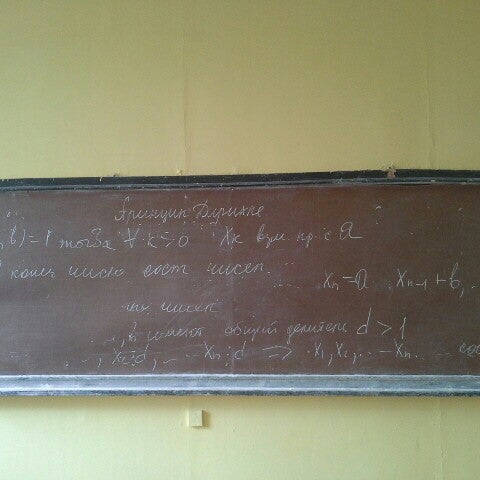 Принцип Дирихле
, b) = 1 тогда ∀ k ≥ 0 Xк вз. пр. с a
конеч число сост чисел.
Xn = a Xn-1 + b, ..
ных чисел
, b имеют общий делитель d > 1
.., X2⋮d, ... Xn⋮d ⇒ X1, X2, ... - Xn ... сос